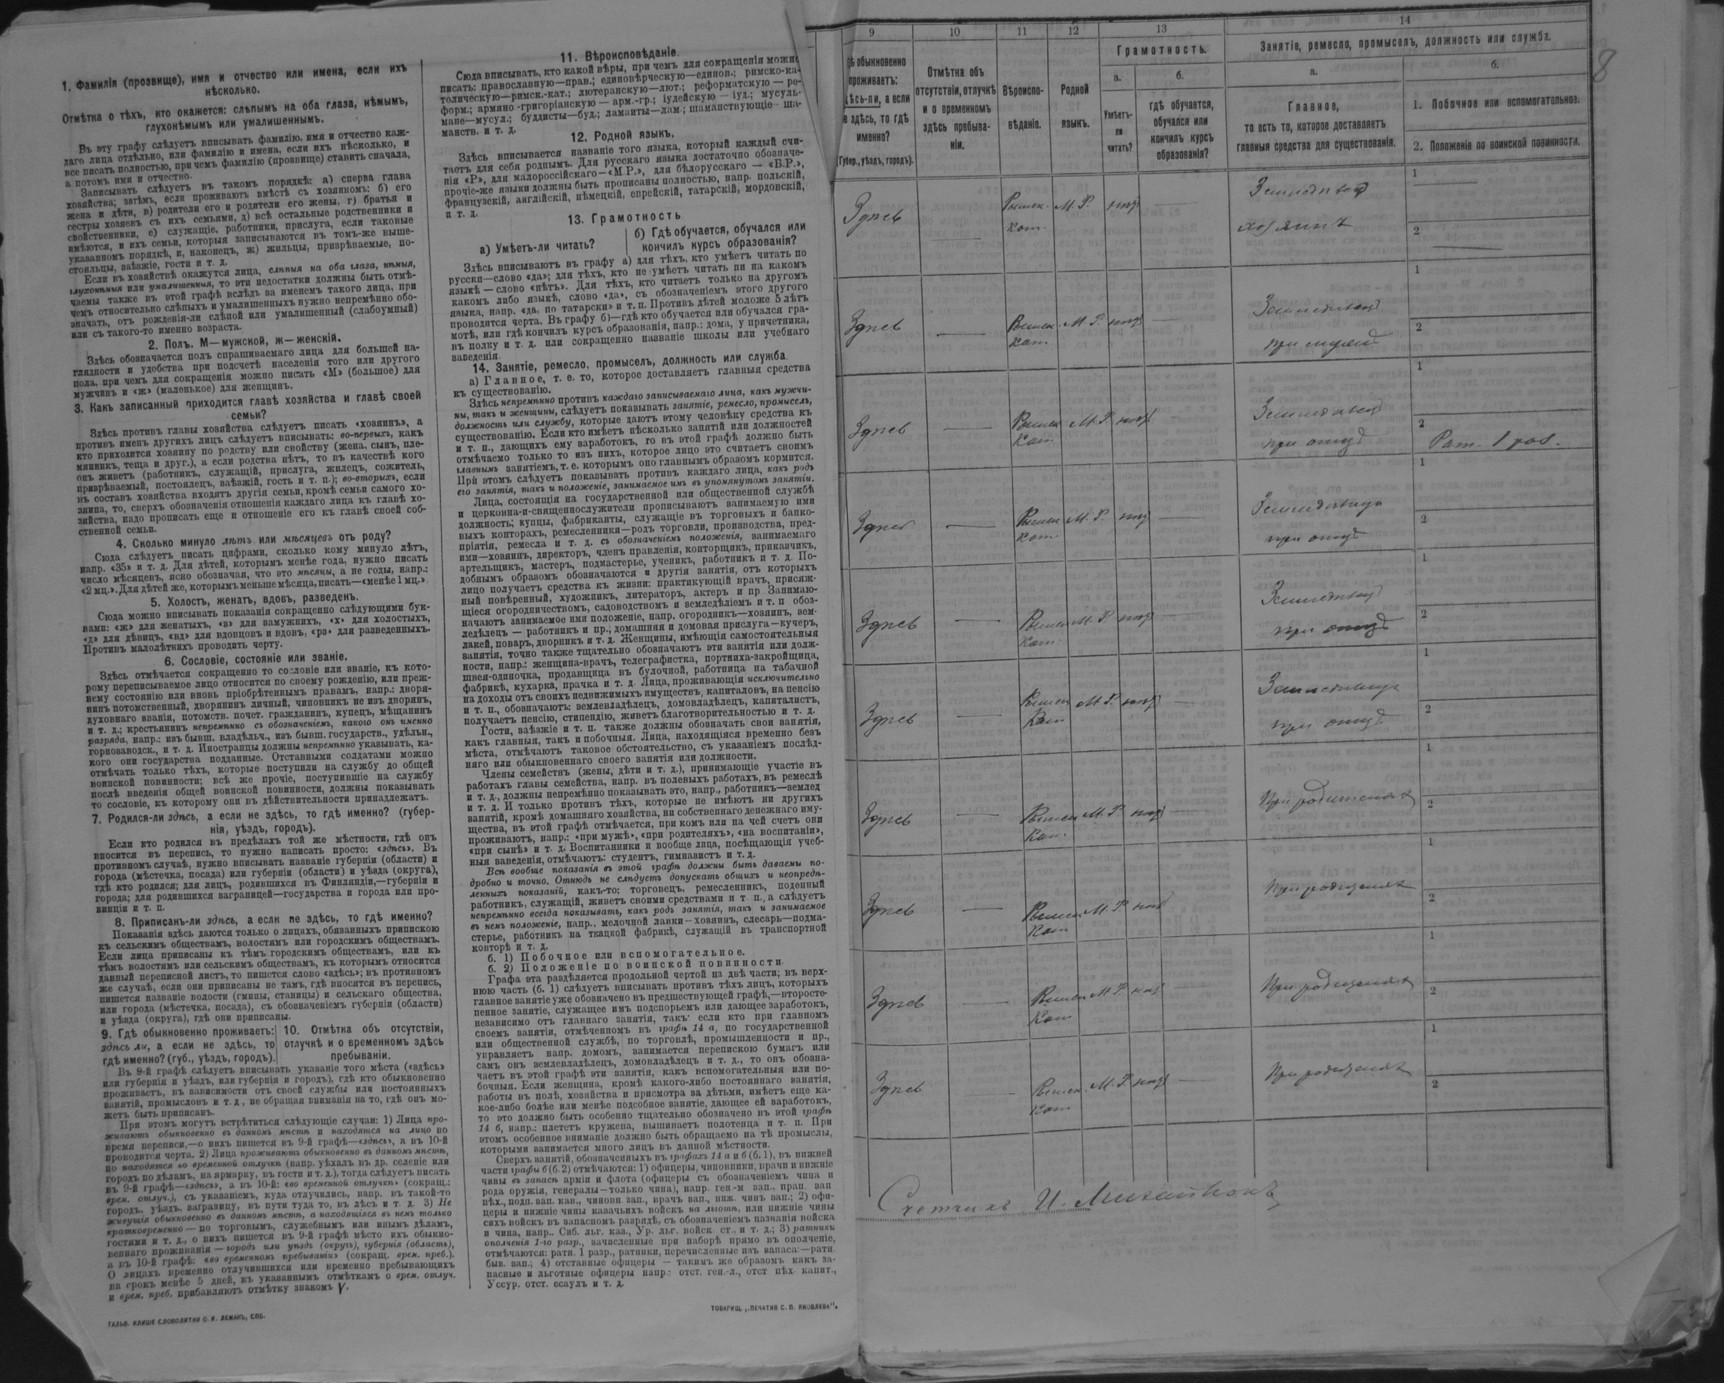 1. Фамилія (прозвище), имя и отчество или имена, если ихъ
нѣсколько.
Отмѣтка о тѣхъ, кто окажется: слѣпымъ на оба глаза, нѣмымъ,
глухонѣмымъ или умалишеннымъ.
Въ эту графу слѣдуетъ вписывать фамилію, имя и отчество каж-
даго лица отдѣльно, или фамилію и имена, если ихъ нѣсколько, и
все писать полностью, при чемъ фамилію (прозвище) ставить сначала,
а потомъ имя и отчество.
Записывать слѣдуетъ въ такомъ порядкѣ: а) сперва глава
хозяйства; затѣмъ, если проживаютъ вмѣстѣ съ хозяиномъ: б) его
жена и дѣти, в) родители его и родители его жены, г) братья и
сестры хозяевъ съ ихъ семьями, д) всѣ остальные родственники и
свойственники, е) служащіе, работники, прислуга, если таковые
имѣются, и ихъ семьи, которыя записываются въ томъ-же выше-
указанномъ порядкѣ, и, наконецъ, ж) жильцы, призрѣваемые, по-
стояльцы, заѣзжіе, гости и т. д.
Если въ хозяйствѣ окажутся лица, слѣпыя на оба глаза, нѣмыя,
глухонѣмыя или умалишенныя, то эти недостатки должны быть отмѣ-
чаемы также въ этой графѣ вслѣдъ за именемъ такого лица, при
чемъ относительно слѣпыхъ и умалишенныхъ нужно непремѣнно обо-
значать, отъ рожденія-ли слѣпой или умалишенный (слабоумный)
или съ такого-то именно возраста.
2. Полъ. М—мужской, ж—женскій.
Здѣсь обозначается полъ спрашиваемаго лица для большей на-
глядности и удобства при подсчетѣ населенія того или другого
пола, при чемъ для сокращенія можно писать «М» (большое) для
мужчинъ и «ж» (маленькое) для женщинъ.
3. Какъ записанный приходится главѣ хозяйства и главѣ своей
семьи?
Здѣсь противъ главы хозяйства слѣдуетъ писать «хозяинъ», а
противъ именъ другихъ лицъ слѣдуетъ вписывать: во-первыхъ, какъ
кто приходится хозяину по родству или свойству (жена, сынъ, пле-
мянникъ, теща и друг.), а если родства нѣтъ, то въ качествѣ кого
онъ живетъ (работникъ, служащій, прислуга, жилецъ, сожитель,
призрѣваемый, постоялецъ, заѣзжій, гость и т. п.); во-вторыхъ, если
въ составъ хозяйства входятъ другія семьи, кромѣ семьи самого хо-
зяина, то, сверхъ обозначенія отношенія каждаго лица къ главѣ хо-
зяйства, надо прописать еще и отношеніе его къ главѣ своей соб-
ственной семьи.
4. Сколько минуло лѣтъ или мѣсяцевъ отъ роду?
Сюда слѣдуетъ писать цифрами, сколько кому минуло лѣтъ,
напр. «35» и т. д. Для дѣтей, которымъ менѣе года, нужно писать
число мѣсяцевъ, ясно обозначая, что это мѣсяцы, а не годы, напр.:
«2 мц.». Для дѣтей же, которымъ меньше мѣсяца, писать—«менѣе 1 мц.».
5. Холостъ, женатъ, вдовъ, разведенъ.
Сюда можно вписывать показанія сокращенно слѣдующими бук-
вами: «ж» для женатыхъ, «з» для замужнихъ, «х» для холостыхъ,
«д» для дѣвицъ, «вд» для вдовцовъ и вдовъ, «рз» для разведенныхъ.
Противъ малолѣтнихъ проводить черту.
6. Сословіе, состояніе или званіе.
Здѣсь отмѣчается сокращенно то сословіе или званіе, къ кото-
рому переписываемое лицо относится по своему рожденію, или преж-
нему состоянію или вновь пріобрѣтеннымъ правамъ, напр.: дворя-
нинъ потомственный, дворянинъ личный, чиновникъ не изъ дворянъ,
духовнаго званія, потомств. почет. гражданинъ, купецъ, мѣщанинъ
и т. д.; крестьянинъ непремѣнно съ обозначеніемъ, какого онъ именно
разряда, напр.: изъ бывш. владѣльч., изъ бывш. государств., удѣльн.,
горнозаводск., и т. д. Иностранцы должны непремѣнно указывать, ка-
кого они государства подданные. Отставными солдатами можно
отмѣчать только тѣхъ, которые поступили на службу до общей
воинской повинности; всѣ же прочіе, поступившіе на службу
послѣ введенія общей воинской повинности, должны показывать
то сословіе, къ которому они въ дѣйствительности принадлежатъ.
7. Родился-ли здѣсь, а если не здѣсь, то гдѣ именно? (губер-
нія, уѣздъ, городъ).
Если кто родился въ предѣлахъ той же мѣстности, гдѣ онъ
вносится въ перепись, то нужно написать просто: «здѣсь». Въ
противномъ случаѣ, нужно вписывать названіе губерніи (области) и
города (мѣстечка, посада) или губерніи (области) и уѣзда (округа),
гдѣ кто родился; для лицъ, родившихся въ Финляндіи,—губерніи и
города; для родившихся заграницей—государства и города или про-
винціи и т. п.
8. Приписанъ-ли здѣсь, а если не здѣсь, то гдѣ именно?
Показанія здѣсь даются только о лицахъ, обязанныхъ припискою
къ сельскимъ обществамъ, волостямъ или городскимъ обществамъ.
Если лица приписаны къ тѣмъ городскимъ обществамъ, или къ
тѣмъ волостямъ или сельскимъ обществамъ, къ которымъ относится
данный переписной листъ, то пишется слово «здѣсь»; въ противномъ
же случаѣ, если они приписаны не тамъ, гдѣ вносятся въ перепись,
пишется названіе волости (гмины, станицы) и сельскаго общества,
или города (мѣстечка, посада), съ обозначеніемъ губерніи (области)
и уѣзда (округа), гдѣ они приписаны.
9. Гдѣ обыкновенно проживаетъ:
здѣсь ли, а если не здѣсь, то
гдѣ именно? (губ., уѣздъ, городъ).
10. Отмѣтка объ отсутствіи,
отлучкѣ и о временномъ здѣсь
пребываніи.
Въ 9-й графѣ слѣдуетъ вписывать указаніе того мѣста («здѣсь»
или губернія и уѣздъ, или губернія и городъ), гдѣ кто обыкновенно
проживаетъ, въ зависимости отъ своей службы или постоянныхъ
занятій, промысловъ и т. д., не обращая вниманія на то, гдѣ онъ мо-
жетъ быть приписанъ.
При этомъ могутъ встрѣтиться слѣдующіе случаи: 1) Лица про-
живаютъ обыкновенно въ данномъ мѣстѣ и находятся на лицо во
время переписи,—о нихъ пишется въ 9-й графѣ—«здѣсь», а въ 10-й
проводится черта. 2) Лица проживаютъ обыкновенно въ данномъ мѣстѣ,
но находятся во временной отлучкѣ (напр. уѣхалъ въ др. селеніе или
городъ по дѣламъ, на ярмарку, въ гости и т. д.), тогда слѣдуетъ писать
въ 9-й графѣ—«здѣсь», а въ 10-й: «во временной отлучкѣ» (сокращ.:
врем. отлуч.), съ указаніемъ, куда отлучились, напр. въ такой-то
городъ, уѣздъ, заграницу, въ пути туда то, въ лѣсъ и т. д. 3) Не
живущія обыкновенно въ данномъ мѣстѣ, а находящіяся въ немъ только
кратковременно — по торговымъ, служебнымъ или инымъ дѣламъ,
гостями и т. д., о нихъ пишется въ 9-й графѣ мѣсто ихъ обыкно-
веннаго проживанія —городъ или уѣздъ (округъ), губернія (область),
а въ 10-й графѣ: «во временномъ пребываніи» (сокращ. врем. преб.).
О лицахъ временно отлучившихся или временно пребывающихъ
на срокъ менѣе 5 дней, къ указаннымъ отмѣткамъ о врем. отлуч.
и врем. преб. прибавляютъ отмѣтку знакомъ V.
ГАЛЬВ. КЛИШЕ СЛОВОЛИТНИ О. И. ЛЕМАНЪ, СПБ.
11. Вѣроисповѣданіе.
Сюда вписывать, кто какой вѣры, при чемъ для сокращенія можно
писать: православную—прав.; единовѣрческую—единов.; римско-ка-
толическую—римск.-кат.; лютеранскую—лют.; реформатскую — ре-
форм.; армяно-григоріанскую — арм.-гр.; іудейскую — іуд.; мусуль-
мане—мусул.; буддисты—буд.; ламаиты—лам.; шаманствующіе— ша-
манств. и т. д.
12. Родной языкъ.
Здѣсь вписывается названіе того языка, который каждый счи-
таетъ для себя роднымъ. Для русскаго языка достаточно обозначе-
нія «Р», для малороссійскаго—«М.Р.», для бѣлорусскаго — «Б.Р.»,
прочіе-же языки должны быть прописаны полностью, напр. польскій,
французскій, англійскій, нѣмецкій, еврейскій, татарскій, мордовскій,
и т. д.
13. Грамотность
а) Умѣетъ-ли читать?
б) Гдѣ обучается, обучался или
кончилъ курсъ образованія?
Здѣсь вписываютъ въ графу а) для тѣхъ, кто умѣетъ читать по
русски—слово «да»; для тѣхъ, кто не умѣетъ читать ни на какомъ
языкѣ — слово «нѣтъ». Для тѣхъ, кто читаетъ только на другомъ
какомъ либо языкѣ, слово «да», съ обозначеніемъ этого другого
языка, напр. «да, по татарски» и т. п. Противъ дѣтей моложе 5 лѣтъ
проводится черта. Въ графу б)—гдѣ кто обучается или обучался гра-
мотѣ, или гдѣ кончилъ курсъ образованія, напр.: дома, у причетника,
въ полку и т. д. или сокращенно названіе школы или учебнаго
заведенія.
14. Занятіе, ремесло, промыселъ, должность или служба.
а) Главное, т. е. то, которое доставляетъ главныя средства
къ существованію.
Здѣсь непремѣнно противъ каждаго записываемаго лица, какъ мужчи-
ны, такъ и женщины, слѣдуетъ показывать занятіе, ремесло, промыселъ,
должность или службу, которые даютъ этому человѣку средства къ
существованію. Если кто имѣетъ нѣсколько занятій или должностей
и т. п., дающихъ ему заработокъ, то въ этой графѣ должно быть
отмѣчаемо только то изъ нихъ, которое лицо это считаетъ своимъ
главнымъ занятіемъ, т. е. которымъ оно главнымъ образомъ кормится.
При этомъ слѣдуетъ показывать противъ каждаго лица, какъ родъ
его занятія, такъ и положеніе, занимаемое имъ въ упомянутомъ занятіи.
Лица, состоящія на государственной или общественной службѣ
и церковно-и-священнослужители прописываютъ занимаемую ими
должность; купцы, фабриканты, служащіе въ торговыхъ и банко-
выхъ конторахъ, ремесленники—родъ торговли, производства, пред-
пріятія, ремесла и т. д. съ обозначеніемъ положенія, занимаемаго
ими—хозяинъ, директоръ, членъ правленія, конторщикъ, приказчикъ,
артельщикъ, мастеръ, подмастерье, ученикъ, работникъ и т. д. По-
добнымъ образомъ обозначаются и другія занятія, отъ которыхъ
лицо получаетъ средства къ жизни: практикующій врачъ, присяж-
ный повѣренный, художникъ, литераторъ, актеръ и пр. Занимаю-
щіеся огородничествомъ, садоводствомъ и земледѣліемъ и т. п. обоз-
начаютъ занимаемое ими положеніе, напр. огородникъ—хозяинъ, зем-
ледѣлецъ — работникъ и пр.; домашняя и домовая прислуга—кучеръ,
лакей, поваръ, дворникъ и т. д. Женщины, имѣющія самостоятельныя
занятія, точно также тщательно обозначаютъ эти занятія или долж-
ности, напр.: женщина-врачъ, телеграфистка, портниха-закройщица,
швея-одиночка, продавщица въ булочной, работница на табачной
фабрикѣ, кухарка, прачка и т. д. Лица, проживающія исключительно
на доходы отъ своихъ недвижимыхъ имуществъ, капиталовъ, на пенсію
и т. п., обозначаютъ: землевладѣлецъ, домовладѣлецъ, капиталистъ,
получаетъ пенсію, стипендію, живетъ благотворительностью и т. д.
Гости, заѣзжіе и т. п. также должны обозначать свои занятія,
какъ главныя, такъ и побочныя. Лица, находящіяся временно безъ
мѣста, отмѣчаютъ таковое обстоятельство, съ указаніемъ послѣд-
няго или обыкновеннаго своего занятія или должности.
Члены семействъ (жены, дѣти и т. д.), принимающіе участіе въ
работахъ главы семейства, напр. въ полевыхъ работахъ, въ ремеслѣ
и т. д., должны непремѣнно показывать это, напр., работникъ—землед.
и т. д. И только противъ тѣхъ, которые не имѣютъ ни другихъ
занятій, кромѣ домашняго хозяйства, ни собственнаго денежнаго иму-
щества, въ этой графѣ отмѣчается, при комъ или на чей счетъ они
проживаютъ, напр.: «при мужѣ», «при родителяхъ», «на воспитаніи»,
«при сынѣ» и т. д. Воспитанники и вообще лица, посѣщающія учеб-
ныя заведенія, отмѣчаютъ: студентъ, гимназистъ и т. д.
Всѣ вообще показанія въ этой графѣ должны быть даваемы по-
дробно и точно. Отнюдь не слѣдуетъ допускать общихъ и неопредѣ-
ленныхъ показаній, какъ-то: торговецъ, ремесленникъ, поденный
работникъ, служащій, живетъ своими средствами и т. п., а слѣдуетъ
непремѣнно всегда показывать, какъ родъ занятія, такъ и занимаемое
въ немъ положеніе, напр., мелочной лавки—хозяинъ, слесарь—подма-
стерье, работникъ на ткацкой фабрикѣ, служащій въ транспортной
конторѣ и т. д.
б. 1) Побочное или вспомогательное.
б. 2) Положеніе по воинской повинности
Графа эта раздѣляется продольной чертой на двѣ части; въ верх-
нюю часть (б. 1) слѣдуетъ вписывать противъ тѣхъ лицъ, которыхъ
главное занятіе уже обозначено въ предшествующей графѣ,—второсте-
пенное занятіе, служащее имъ подспорьемъ или дающее заработокъ,
независимо отъ главнаго занятія, такъ: если кто при главномъ
своемъ занятіи, отмѣченномъ въ графѣ 14 а, по государственной
или общественной службѣ, по торговлѣ, промышленности и пр.,
управляетъ напр. домомъ, занимается перепискою бумагъ или
самъ онъ землевладѣлецъ, домовладѣлецъ и т. д., то онъ обозна-
чаетъ въ этой графѣ эти занятія, какъ вспомогательныя или по-
бочныя. Если женщина, кромѣ какого-либо постояннаго занятія,
работы въ полѣ, хозяйства и присмотра за дѣтьми, имѣетъ еще ка-
кое-либо болѣе или менѣе подсобное занятіе, дающее ей заработокъ,
то это должно быть особенно тщательно обозначено въ этой графѣ
14 б, напр.: плететъ кружева, вышиваетъ полотенца и т. п. При
этомъ особенное вниманіе должно быть обращаемо на тѣ промыслы,
которыми занимается много лицъ въ данной мѣстности.
Сверхъ занятій, обозначенныхъ въ графахъ 14 а и б (б. 1), въ нижней
части графы б (б. 2) отмѣчаются: 1) офицеры, чиновники, врачи и нижніе
чины въ запасѣ арміи и флота (офицеры съ обозначеніемъ чина и
рода оружія, генералы—только чина), напр. ген.-м. зап., прап. зап.
пѣх., подп. зап. кав., чиновн. зап., врачъ зап., ниж. чинъ зап.; 2) офи-
церы и нижніе чины казачьихъ войскъ на льготѣ, или нижніе чины
сихъ войскъ въ запасномъ разрядѣ, съ обозначеніемъ названія войска
и чина, напр., Сиб. льг. каз., Ур. льг. войск. ст. и т. д.; 3) ратники
ополченія 1-го разр., зачисленные при наборѣ прямо въ ополченіе,
отмѣчаются: ратн. 1 разр., ратники, перечисленные изъ запаса:—ратн.
быв. зап.; 4) отставные офицеры — такимъ же образомъ какъ за-
пасные и льготные офицеры напр.: отст. ген.-л., отст. пѣх. капит.,
Уссур. отст. есаулъ и т. д.
ТОВАРИЩ. „ПЕЧАТНЯ С. П. ЯКОВЛЕВА".
8
9 10 11 12 13 14
обыкновенно
проживаетъ:
здѣсь-ли, а если
не здѣсь, то гдѣ
именно?
(Губер., уѣздъ, городъ).
Отмѣтка объ
отсутствіи, отлучкѣ
и о временномъ
здѣсь пребыва-
ніи.
Вѣроиспо-
вѣданіе.
Родной
языкъ.
Грамотность.
а.
Умѣетъ-
ли
читать?
б.
гдѣ обучается,
обучался или
кончилъ курсъ
образованія?
Занятіе, ремесло, промыселъ, должность или служба.
а.
Главное,
то есть то, которое доставляетъ
главныя средства для существованія.
б.
1. Побочное или вспомогательное.
2. Положеніе по воинской повинности.
Здѣсь — Римск. Кат. М.Р. нѣтъ — Земледѣлецъ хозяинъ 1 — 2 —
Здѣсь — Римск. Кат. М.Р. нѣтъ — при мужѣ 1 2
Здѣсь — Римск. Кат. М.Р. нѣтъ — Земледѣлецъ при отцѣ 1 2 Рат. 1 раз.
Здѣсь — Римск. Кат. М.Р. нѣтъ — при отцѣ 1 2
Здѣсь — Римск. Кат. М.Р. нѣтъ — Земледѣлецъ при отцѣ 1 2
Здѣсь — Римск. Кат. М.Р. нѣтъ — при отцѣ 1 2
Здѣсь — Римск. Кат. М.Р. нѣтъ — При родителяхъ 1 2
Здѣсь — Римск. Кат. М.Р. нѣтъ — При родителяхъ 1 2
Здѣсь — Римск. Кат. М.Р. нѣтъ — При родителяхъ 1 2
Здѣсь — Римск. Кат. М.Р. нѣтъ — При родителяхъ 1 2
Счетчикъ И.